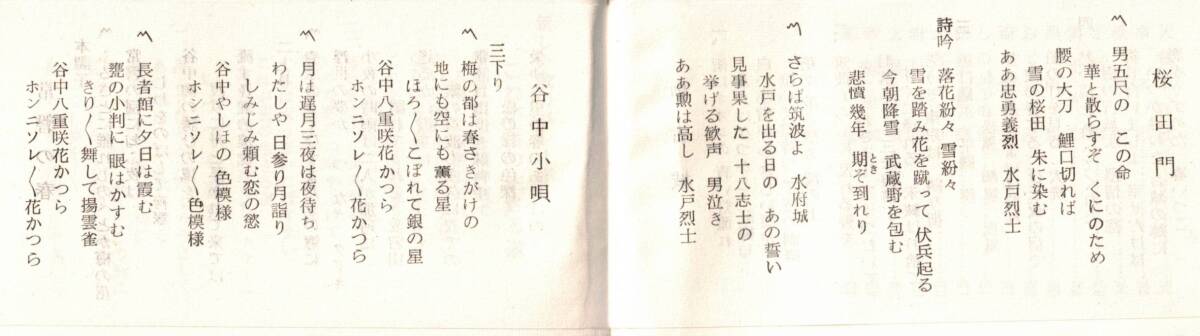 桜田門
〽 男五尺の この命
華と散らすぞ くにのため
腰の大刀 鯉口切れば
雪の桜田 朱に染む
ああ忠勇義烈 水戸烈士
詩吟 落花紛々 雪紛々
雪を踏み花を蹴って 伏兵起る
今朝降雪 武蔵野を包む
悲憤幾年 期ぞ到れり
とき
〽 さらば筑波よ 水府城
水戸を出る日の あの誓い
見事果した 十八志士の
挙げる歓声 男泣き
ああ勲は高し 水戸烈士
谷中小唄
三下り
〽 梅の都は春さきがけの
地にも空にも薫る星
ほろ〳〵こぼれて銀の星
谷中八重咲花かつら
ホンニソレ〳〵花かつら
〽 月は遅月三夜は夜待ち
わたしや 日参り月詣り
しみじみ頼む恋の慾
谷中やしほの 色模様
ホンニソレ〳〵色模様
〽 長者館に夕日は霞む
甕の小判に 眼はかすむ
きり〳〵舞して揚雲雀
谷中八重咲花かつら
ホンニソレ〳〵花かつら